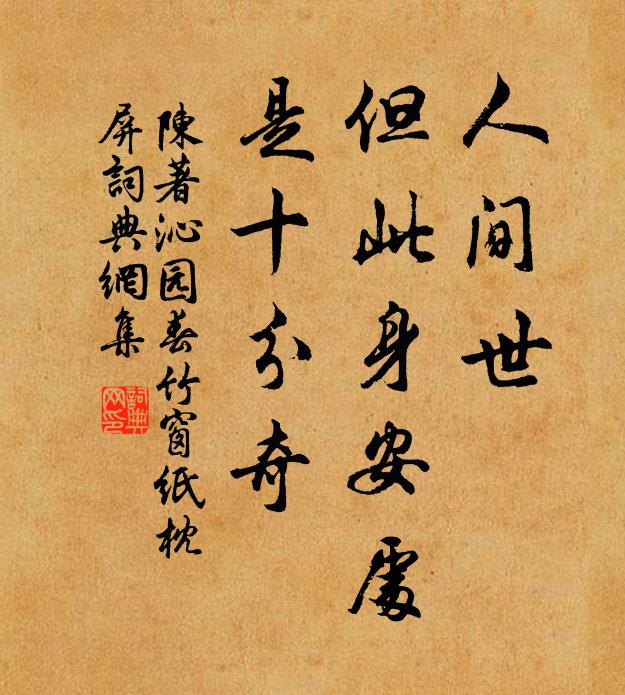 人间世
但此身安處
是十分奇
陳著沁园春竹窗紙枕
屏詞典網集
詞典网印